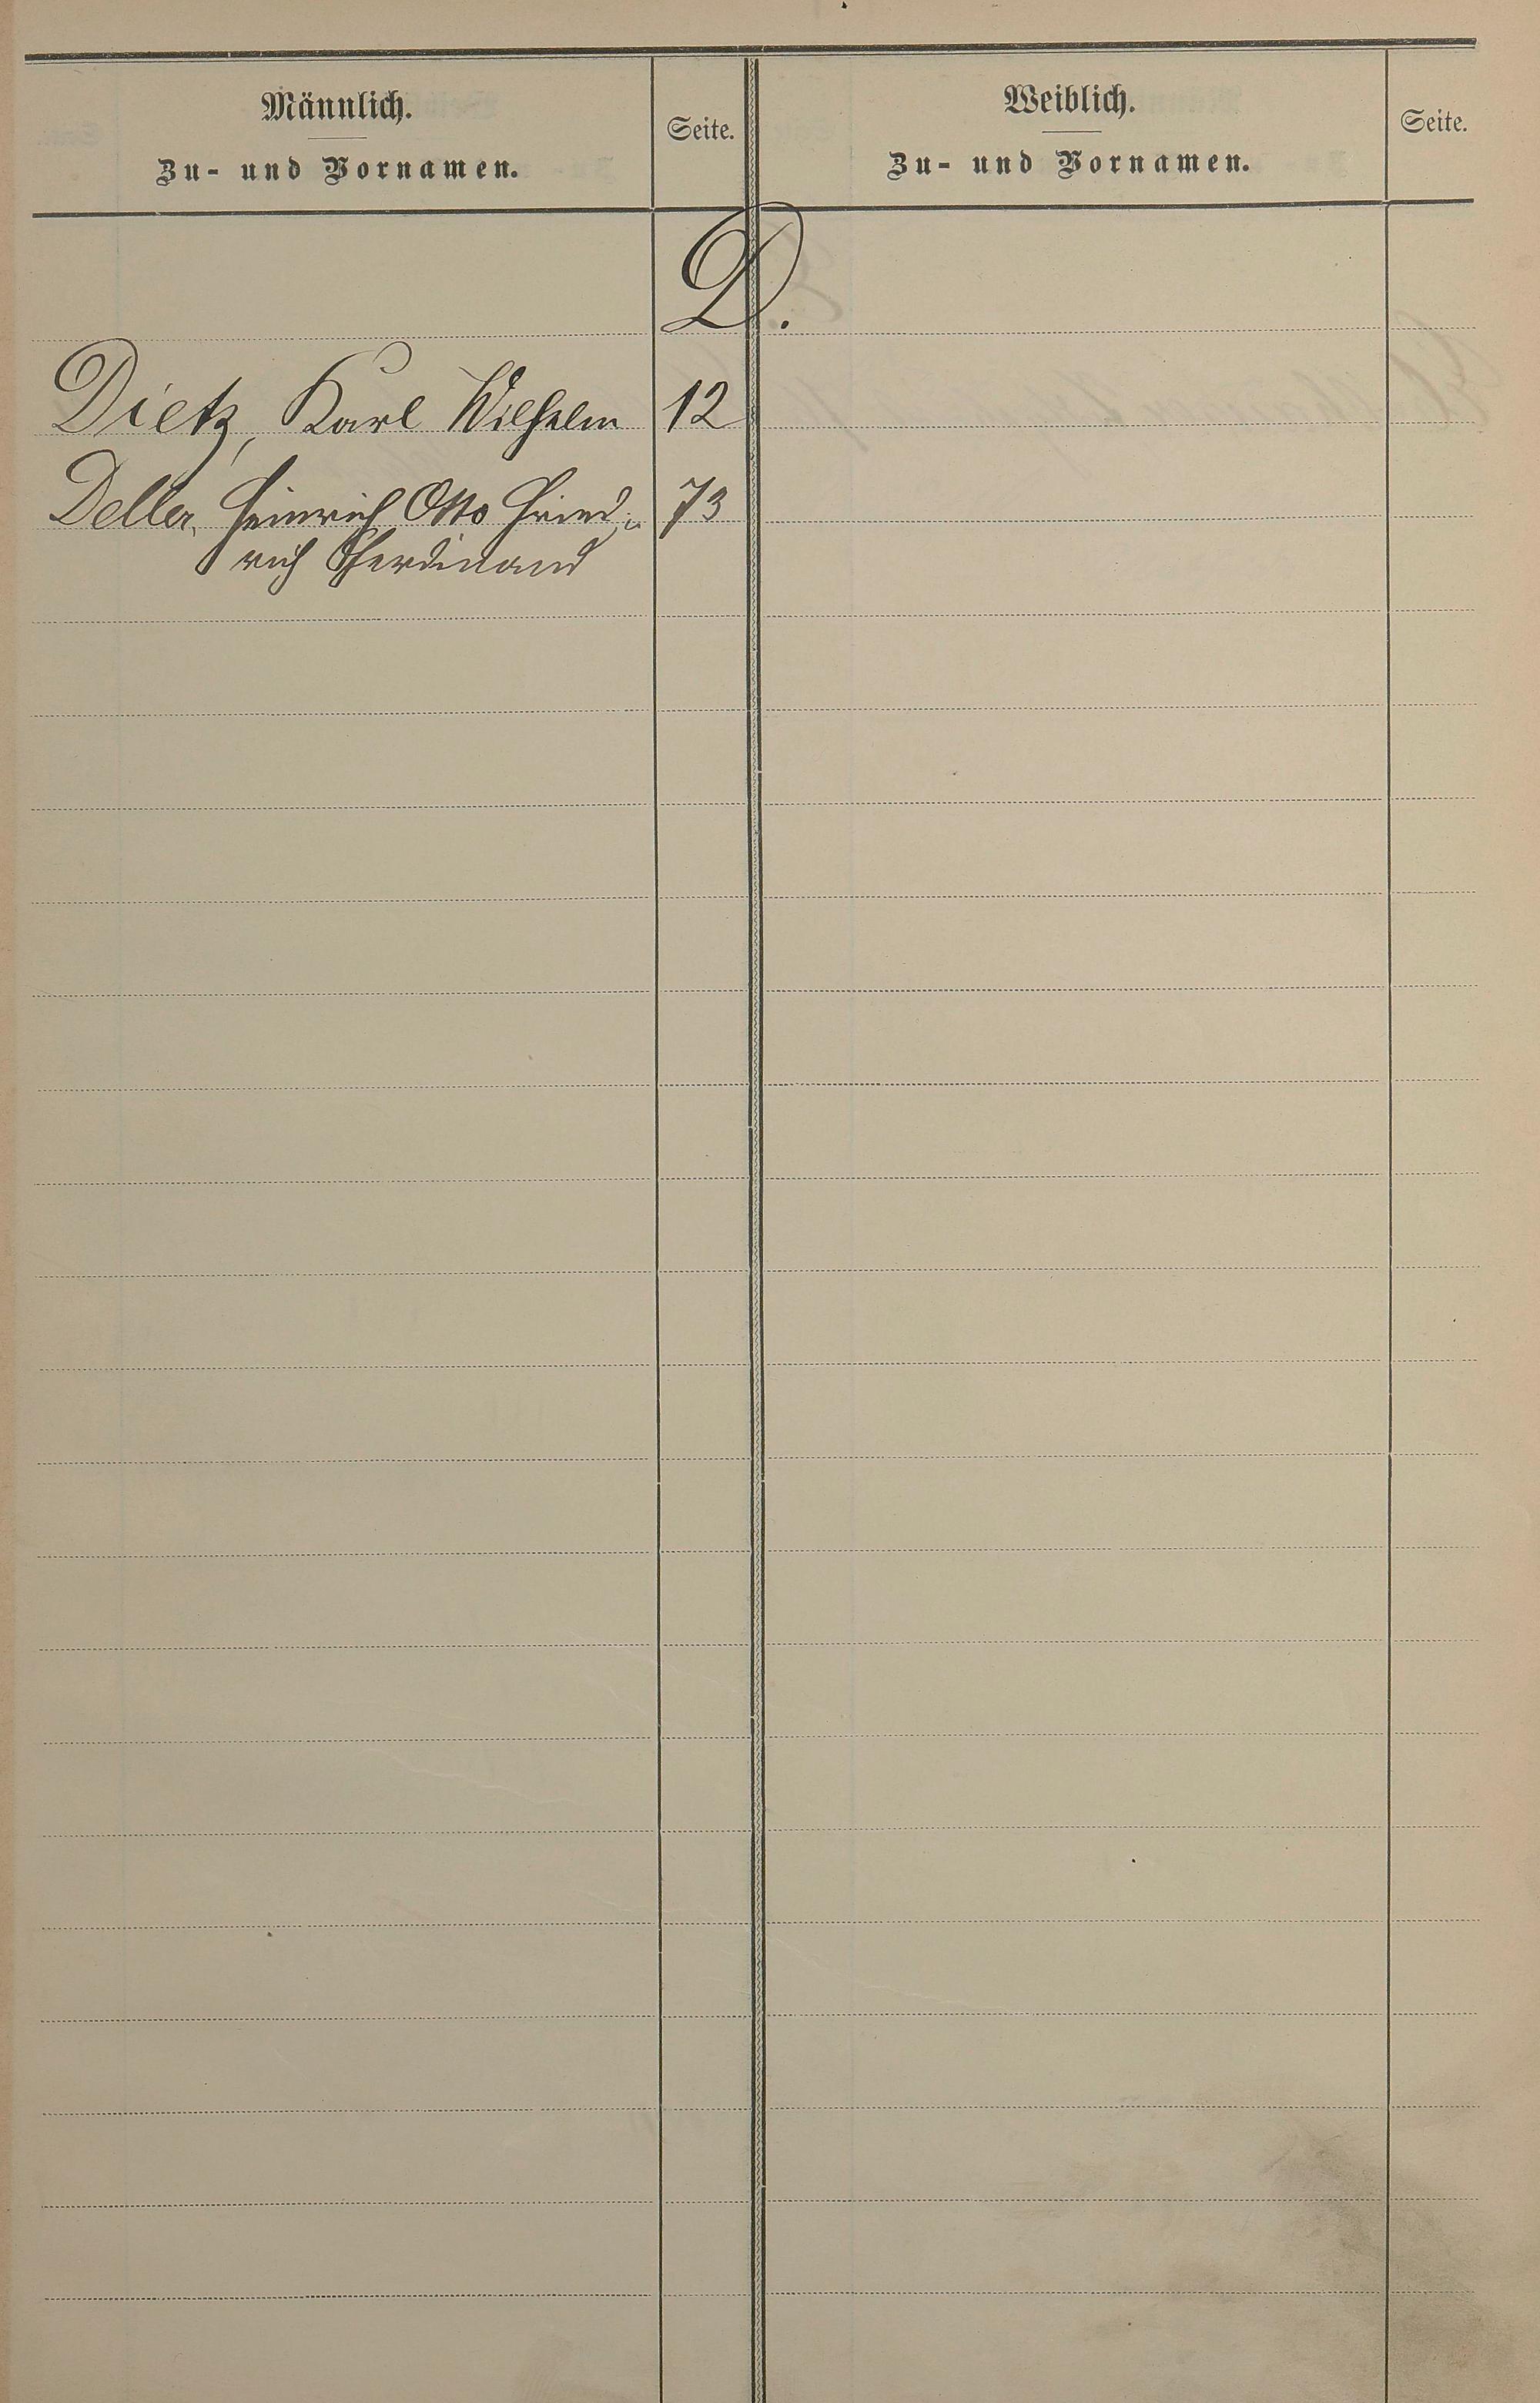 Männlich.
Zu- und Vornamen.
Seite.
Weiblich.
Zu- und Vornamen.
Seite.
D.
Dietz, Karl Wilhelm 12
Deller, Heinrich Otto Fried- 73
rich Ferdinand